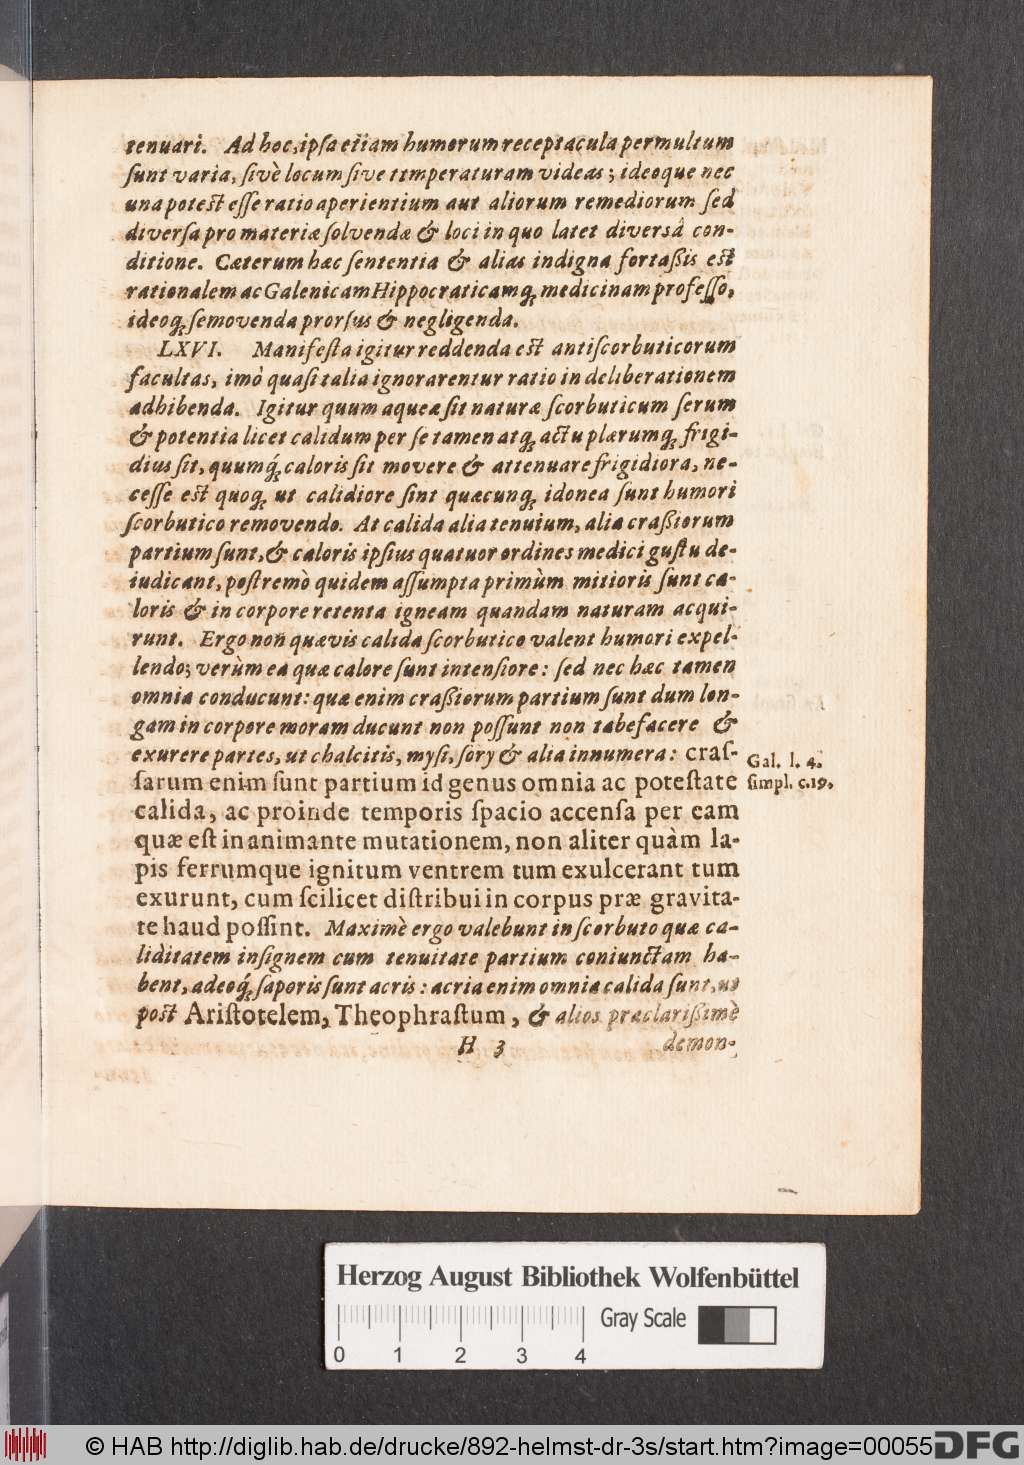 tenuari. Ad hoc, ipſa etiam humorum receptacula permultum
ſunt varia, ſivè locum ſive temperaturam videas; ideoque nec
una poteſt eſſe ratio aperientium aut aliorum remediorum ſed
diverſa pro materiæ ſolvendæ & loci in quo latet diversâ con-
ditione. Cæterum hæc ſententia & alias indigna fortaßis eſt
rationalem ac Galenicam Hippocraticamq́ꝫ medicinam profeſſo,
ideoqꝫ ſemovenda prorſus & negligenda.
LXVI. Manifeſta igitur reddenda eſt antiſcorbuticorum
facultas, imò quaſi talia ignorarentur ratio in deliberationem
adhibenda. Igitur quum aqueæ ſit naturæ ſcorbuticum ſerum
& potentia licet calidum per ſe tamen atqꝫ actu plærumqꝫ frigi-
dius ſit, quumq́ꝫ caloris ſit movere & attenuare frigidiora, ne-
ceſſe eſt quoqꝫ ut calidiore ſint quæcunqꝫ idonea ſunt humori
ſcorbutico removendo. At calida alia tenuium, alia craßiorum
partium ſunt, & caloris ipſius quatuor ordines medici guſtu de-
iudicant, poſtremò quidem aſſumpta primùm mitioris ſunt ca-
loris & in corpore retenta igneam quandam naturam acqui-
runt. Ergo non quævis calida ſcorbutico valent humori expel-
lendo; verùm ea quæ calore ſunt intenſiore: ſed nec hæc tamen
omnia conducunt: quæ enim craßiorum partium ſunt dum lon-
gam in corpore moram ducunt non poſſunt non tabefacere &
exurere partes, ut chalcitis, myſi, ſory & alia innumera: craſ-
ſarum enim ſunt partium id genus omnia ac poteſtate
calida, ac proinde temporis ſpacio accenſa per eam
quæ eſt in animante mutationem, non aliter quàm la-
pis ferrumque ignitum ventrem tum exulcerant tum
exurunt, cum ſcilicet diſtribui in corpus præ gravita-
te haud poſſint. Maximè ergo valebunt in ſcorbuto quæ ca-
liditatem inſignem cum tenuitate partium coniunctam ha-
bent, adeoq́ꝫ ſaporis ſunt acris: acria enim omnia calida ſunt, ut
poſt Ariſtotelem, Theophraſtum, & alios præclarißimè
H 3 demon-
Gal. l. 4.
ſimpl. c. 19.
Herzog August Bibliothek Wolfenbüttel
Gray Scale
0 1 2 3 4
© HAB http://diglib.hab.de/drucke/892-helmst-dr-3s/start.htm?image=00055
DFG